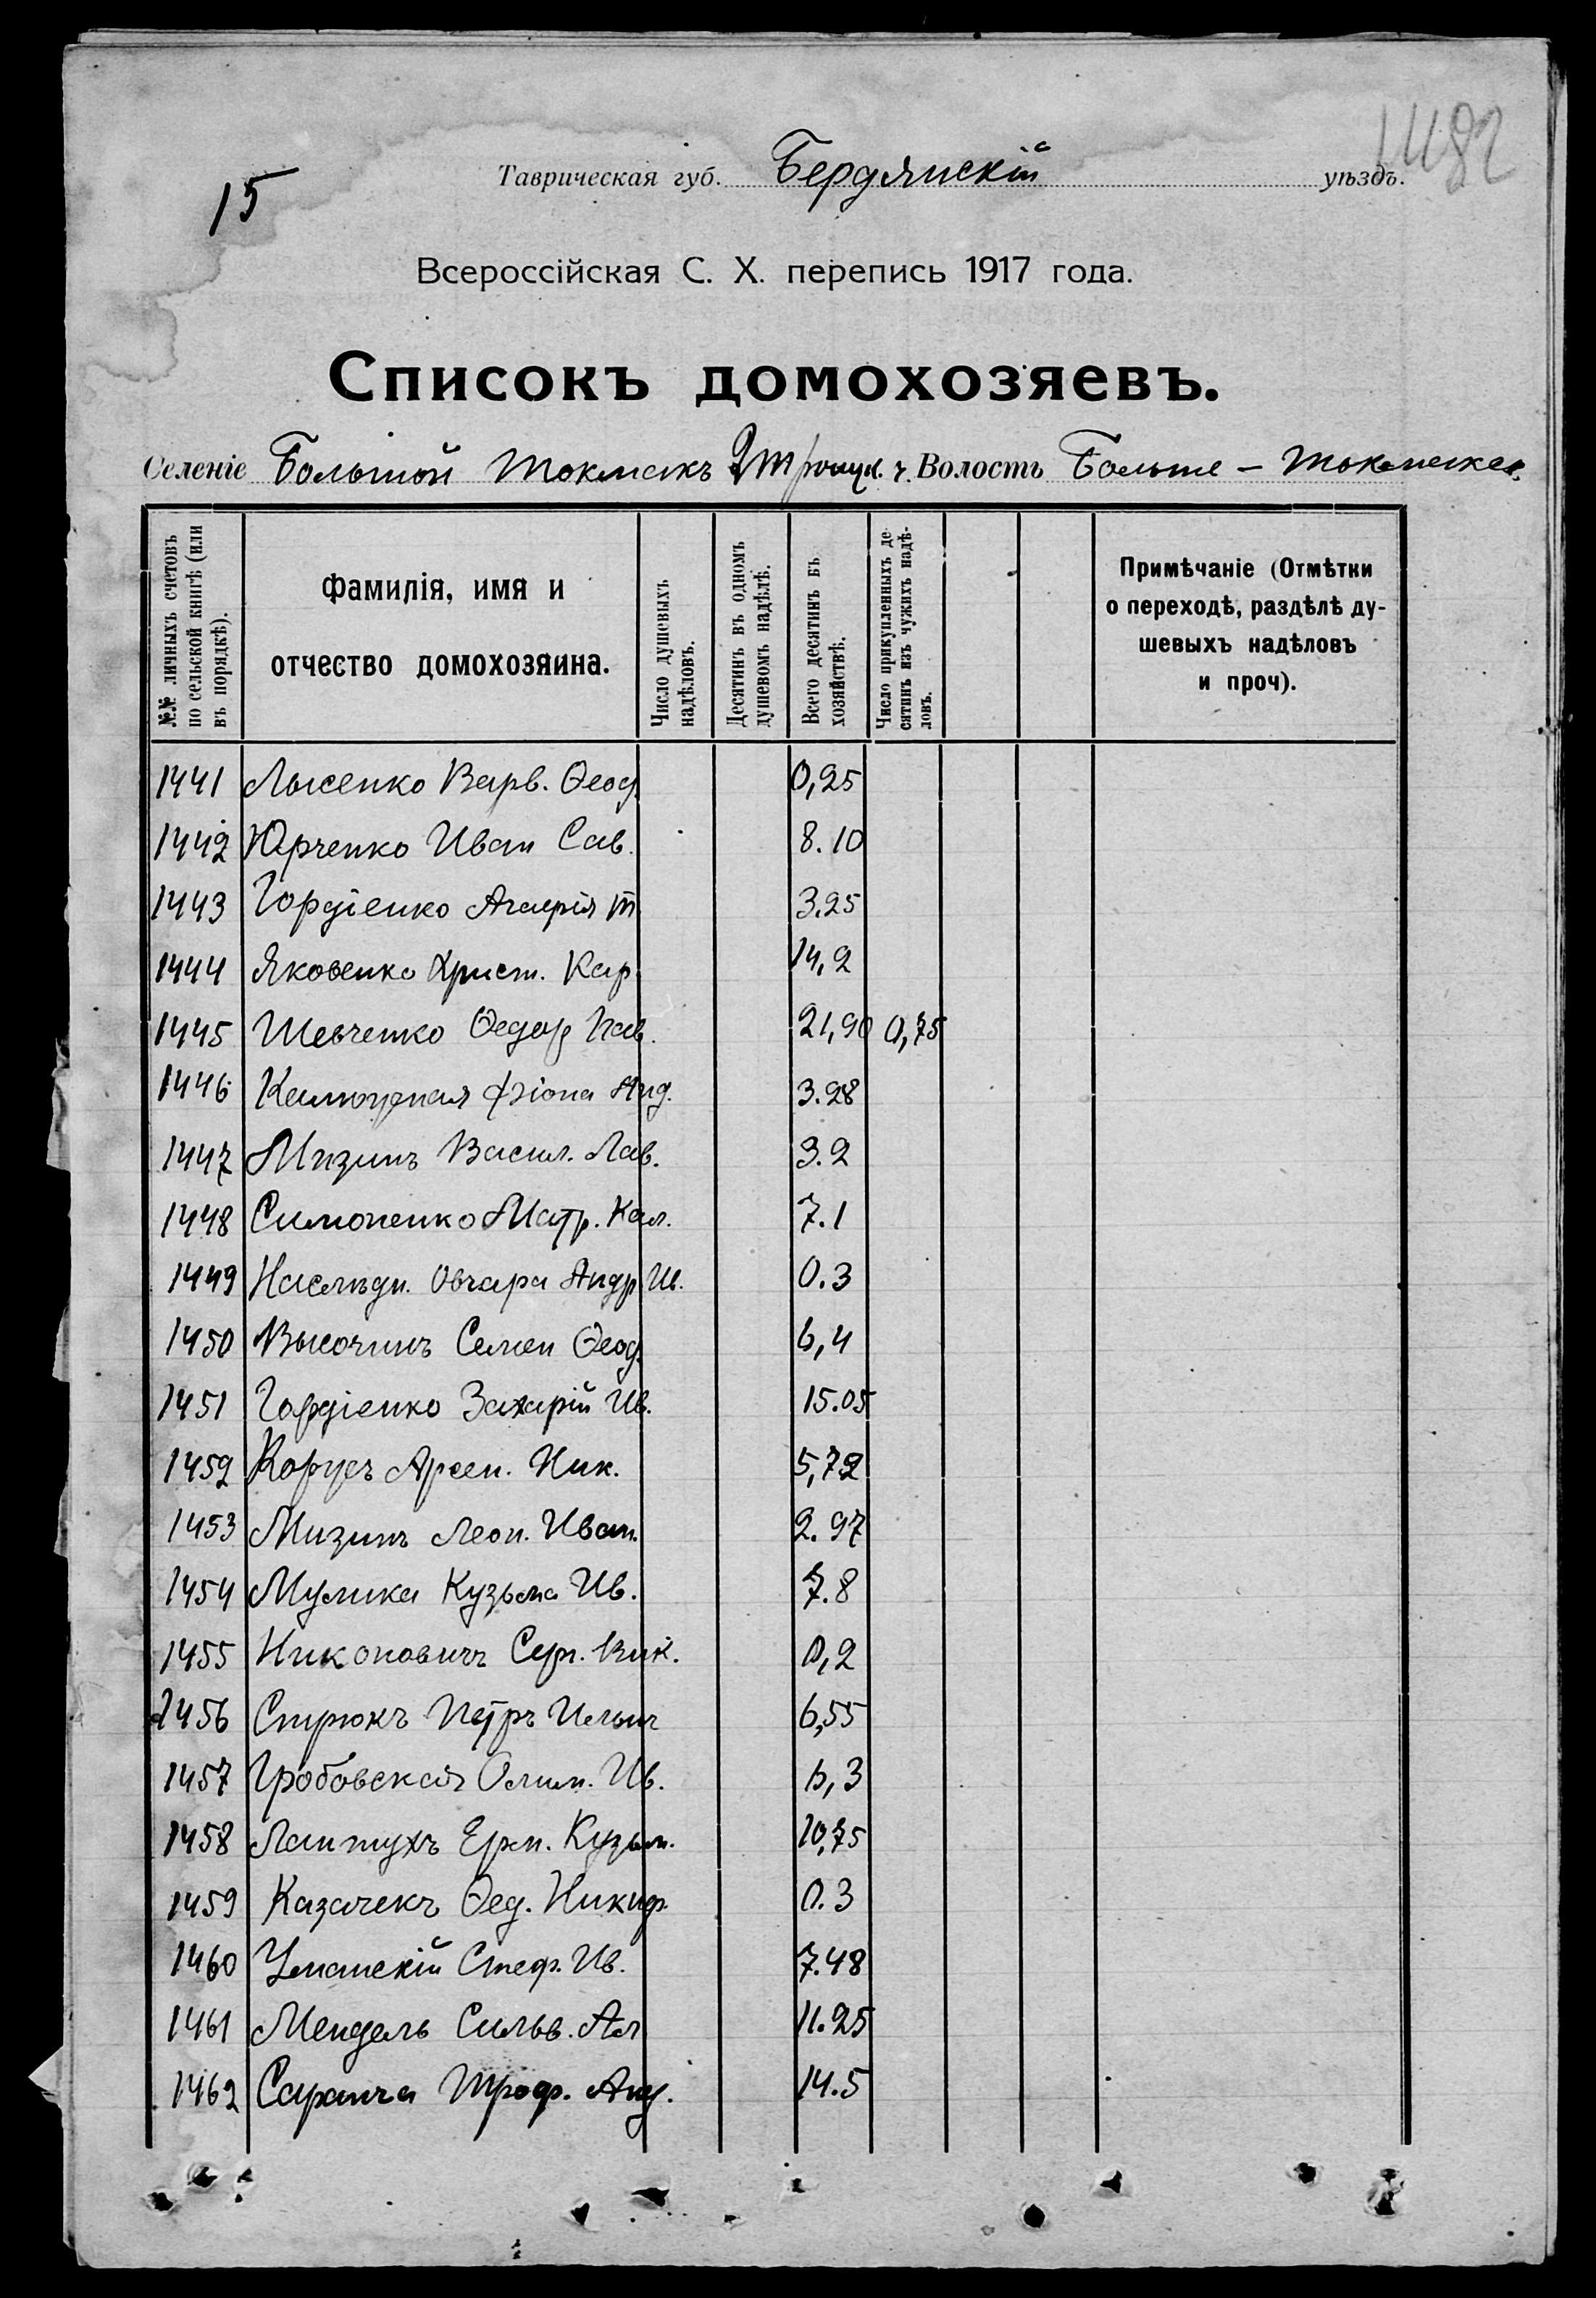 1482
15
Таврическая губ. Бердянскій уѣздъ.
Всероссійская С. Х. перепись 1917 года.
Списокъ домохозяевъ.
Селеніе Большой Токмакъ Волость Больше - Токмакская
№№ личныхъ счетовъ по сельской книгѣ (или въ порядкѣ).
Фамилія, имя и отчество домохозяина.
Число душевыхъ надѣловъ.
Десятинъ въ одномъ душевомъ надѣлѣ.
Всего десятинъ въ хозяйствѣ.
Число прикупленныхъ десятинъ изъ чужихъ надѣловъ.
Примѣчаніе (Отмѣтки о переходѣ, раздѣлѣ душевыхъ надѣловъ и проч).
1441 Лысенко Варв. Ѳеод. 0,25
1442 Юрченко Иван Сав. 8.10
1443 Гордіенко Т 3.25
1444 Яковенко Христ. Кар. 14,2
1445 Шевченко Ѳедор Пав. 21,90 0,75
1446 Анд. 3.28
1447 Мизинъ Васил. Лав. 3.2
1448 Симоненко Матр. Кал. 7.1
1449 Наслѣдн. Овчара Андр Ив. 0.3
1450 Высочинъ Семен Ѳеод. 6,4
1451 Гордіенко Захарій Ив. 15.05
1452 Корусъ Арсен. Ник. 5,72
1453 Мизинъ Леон. Иван. 2.97
1454 Мулика Кузьма Ив. 7.8
1455 Никоновичъ Сер. Вик. 0,2
1456 Стрюкъ Петръ Ильич 6,55
1457 Гробовская Олим. Ив. 0,3
1458 Лантухъ Ерм. Кузьм. 10,75
1459 Казачекъ Ѳед. Никиф. 0.3
1460 Уманскій Стеф. Ив. 7.48
1461 Мендель Сильв. Ал 11.25
1462 Саранча Троф. Анд. 14.5